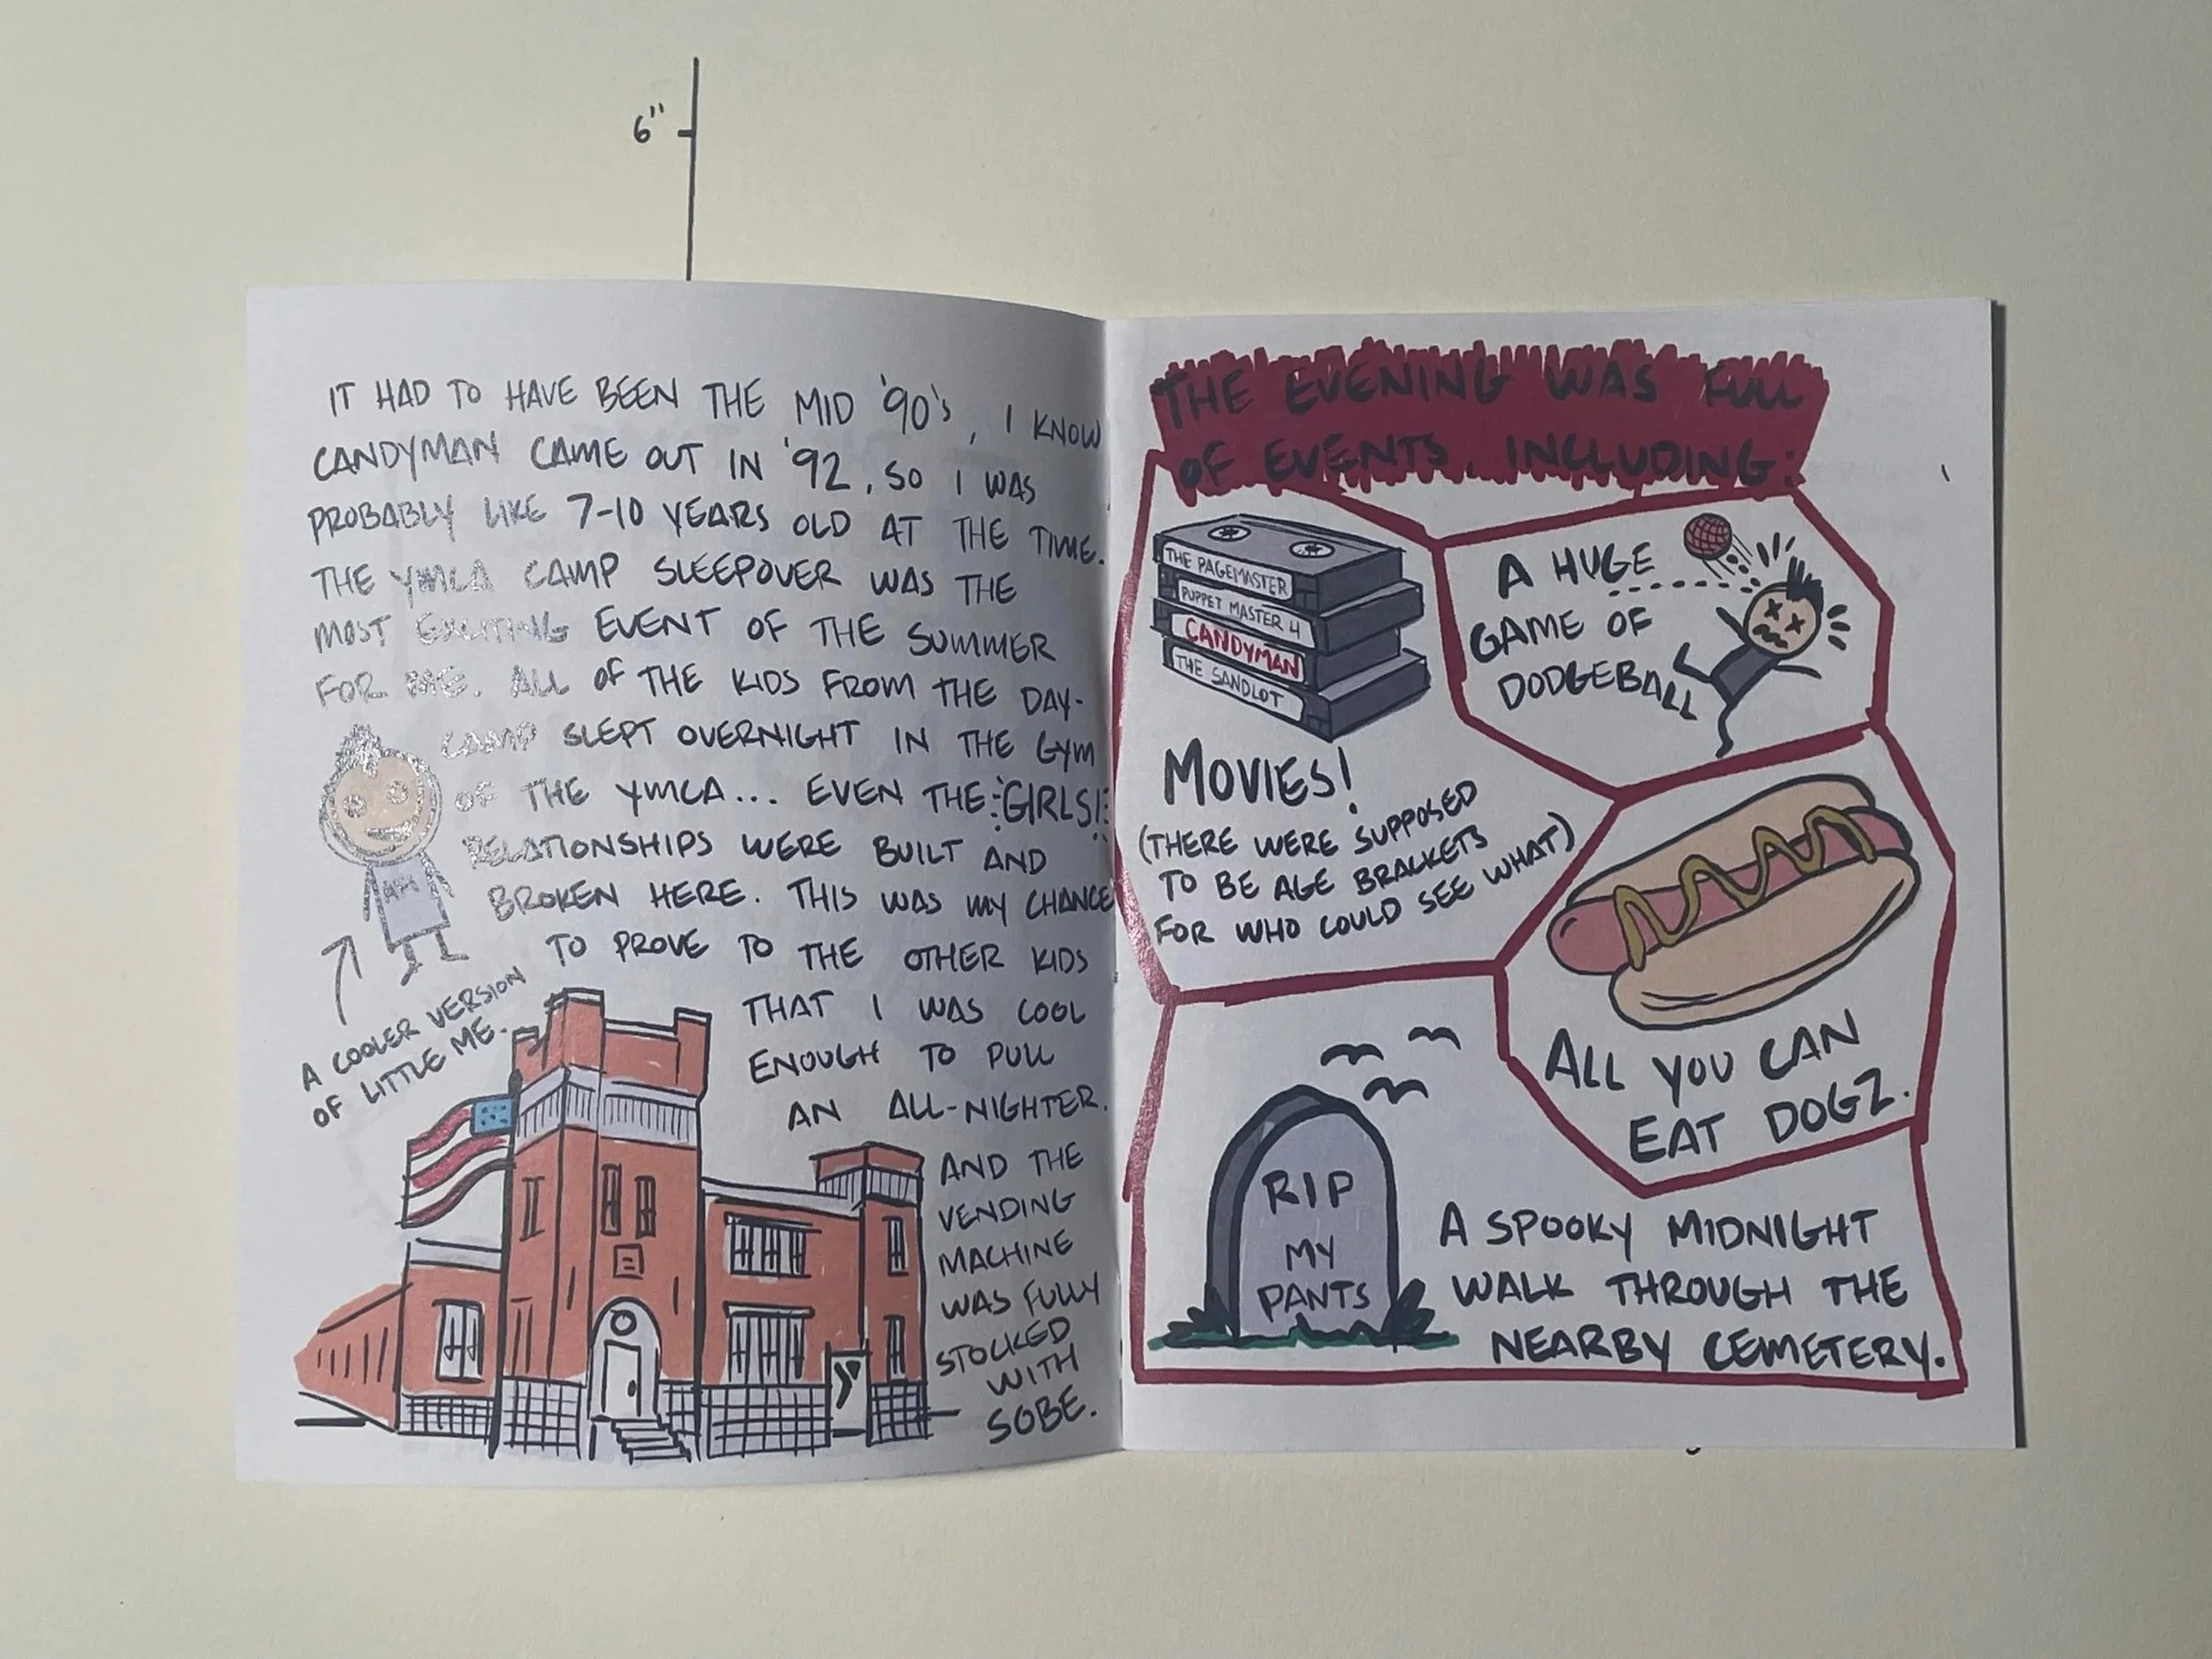 6"
IT HAD TO HAVE BEEN THE MID '90's, I KNOW
CANDYMAN CAME OUT IN '92, SO I WAS
PROBABLY LIKE 7-10 YEARS OLD AT THE TIME.
THE YMCA CAMP SLEEPOVER WAS THE
MOST EXCITING EVENT OF THE SUMMER
FOR ME. ALL OF THE KIDS FROM THE DAY-
CAMP SLEPT OVERNIGHT IN THE GYM
OF THE YMCA... EVEN THE GIRLS!
RELATIONSHIPS WERE BUILT AND
BROKEN HERE. THIS WAS MY CHANCE
TO PROVE TO THE OTHER KIDS
THAT I WAS COOL
ENOUGH TO PULL
AN ALL-NIGHTER.
AND THE
VENDING
MACHINE
WAS FULLY
STOCKED
WITH
SOBE.
A COOLER VERSION
OF LITTLE ME.
Y
THE EVENING WAS FULL
OF EVENTS, INCLUDING:
THE PAGEMASTER
PUPPET MASTER 4
CANDYMAN
THE SANDLOT
MOVIES!
(THERE WERE SUPPOSED
TO BE AGE BRACKETS
FOR WHO COULD SEE WHAT)
A HUGE
GAME OF
DODGEBALL
ALL YOU CAN
EAT DOGZ.
RIP
MY
PANTS
A SPOOKY MIDNIGHT
WALK THROUGH THE
NEARBY CEMETERY.